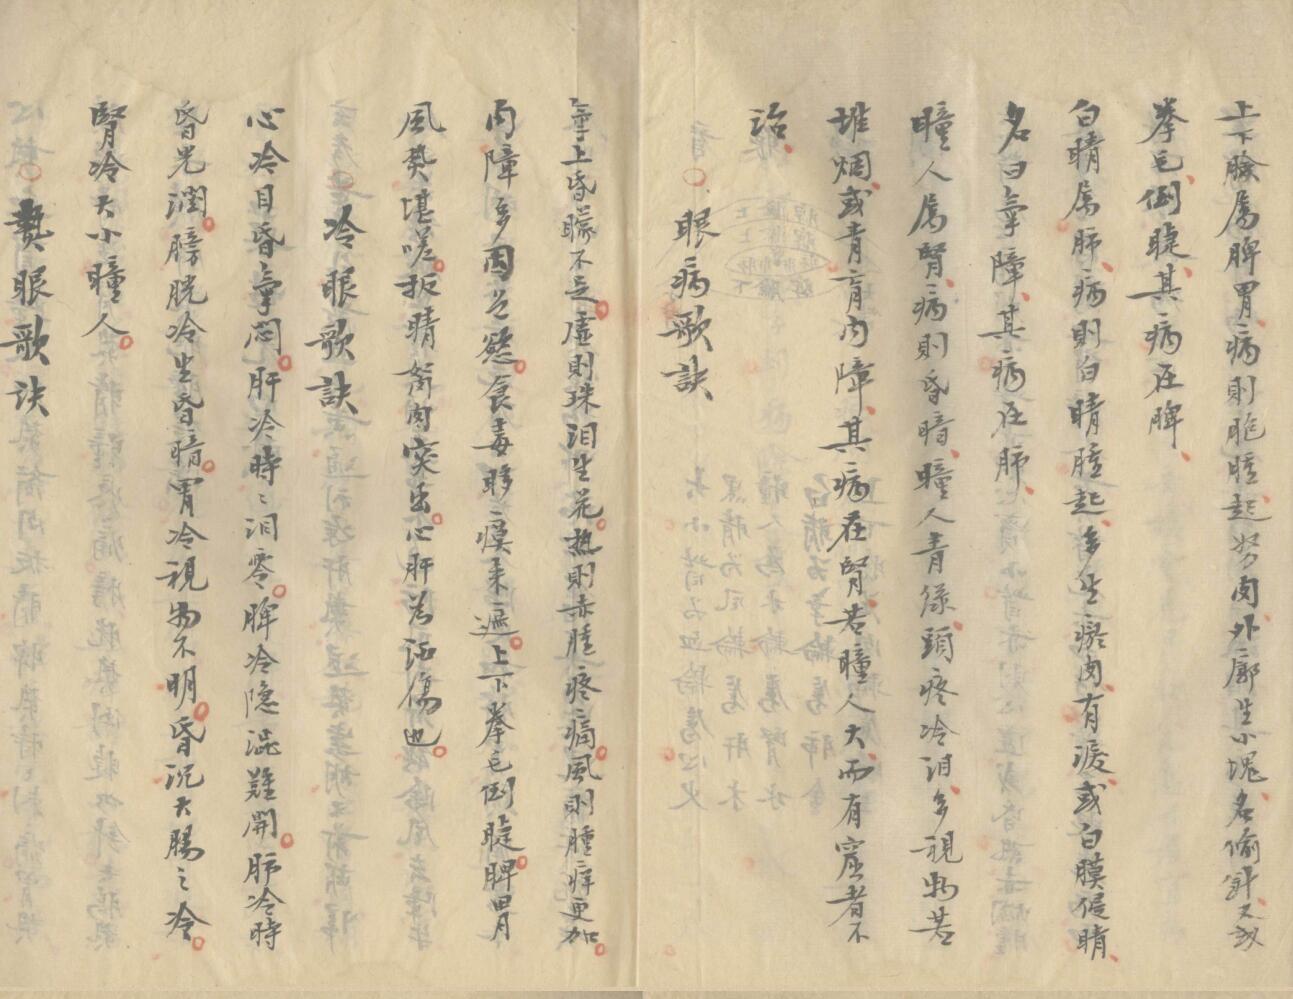 上下臉属脾胃、病則胞腫起、努肉外廓生小塊、名偷針、又或
拳毛倒睫、其病在脾、
白睛属肺、病則白睛腫起、多生瘀肉、有淚、或白膜侵睛、
名曰氣障、其病在肺、
瞳人属腎、病則昏暗、瞳人青緑、頭疼冷泪、多視物若
堆烟、或青盲内障、其病在腎、若瞳人大、而有窟者不
治、
○眼病歌訣
氣上昏矇不足○虚則珠泪生花○热則赤腫疼痛○風則腫痒更加○
内障多因色慾○食毒眵瘼来遮○上下拳毛倒睫○脾胃
風热堪嗟○扳睛胬肉突出○心肝為証傷也○
○冷眼歌訣
心冷目昏氣悶○肝冷時〻泪零○脾冷隐澁難開○肺冷時
昏光潤○膀胱冷生昏暗○胃冷視物不明○昏沉大腸之冷○
腎冷大小瞳人○
○热眼歌訣